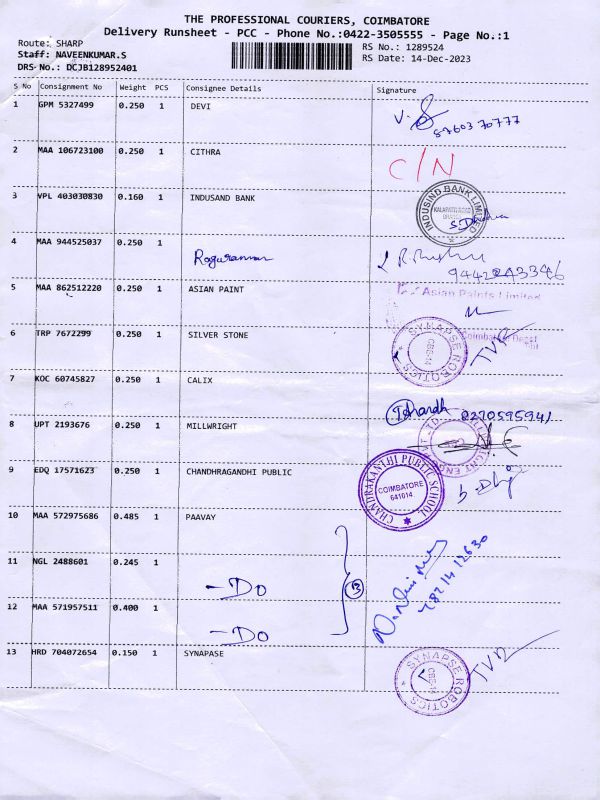 THE PROFESSIONAL COURIERS, COIMBATORE
Delivery Runsheet - PCC - Phone No.:0422-3505555 - Page No.:1
Route: SHARP
RS No.: 1289524
Staff: NAVEENKUMAR.S
RS Date: 14-Dec-2023
DRS No.: DCJB128952401
S No Consignment No Weight PCS Consignee Details Signature
1 GPM 5327499 0.250 1 DEVI
2 MAA 106723100 0.250 1 CITHRA C/N
3 VPL 403030830 0.160 1 INDUSAND BANK
INDUSIND BANK LIMITED
4 MAA 944525037 0.250 1
5 MAA 862512220 0.250 1 ASIAN PAINT
Asian Paints Limited
6 TRP 7672299 0.250 1 SILVER STONE
SYNAPSE ROBOTICS
CBE-14
7 KOC 60745827 0.250 1 CALIX
8 UPT 2193676 0.250 1 MILLWRIGHT
9 EDQ 17571623 0.250 1 CHANDHRAGANDHI PUBLIC
CHANDRAKANTJI PUBLIC SCHOOL
COIMBATORE
641014
10 MAA 572975686 0.485 1 PAAVAY
11 NGL 2488601 0.245 1
-Do
12 MAA 571957511 0.400 1
-Do
13 HRD 704072654 0.150 1 SYNAPASE
SYNAPSE ROBOTICS
CBE-14